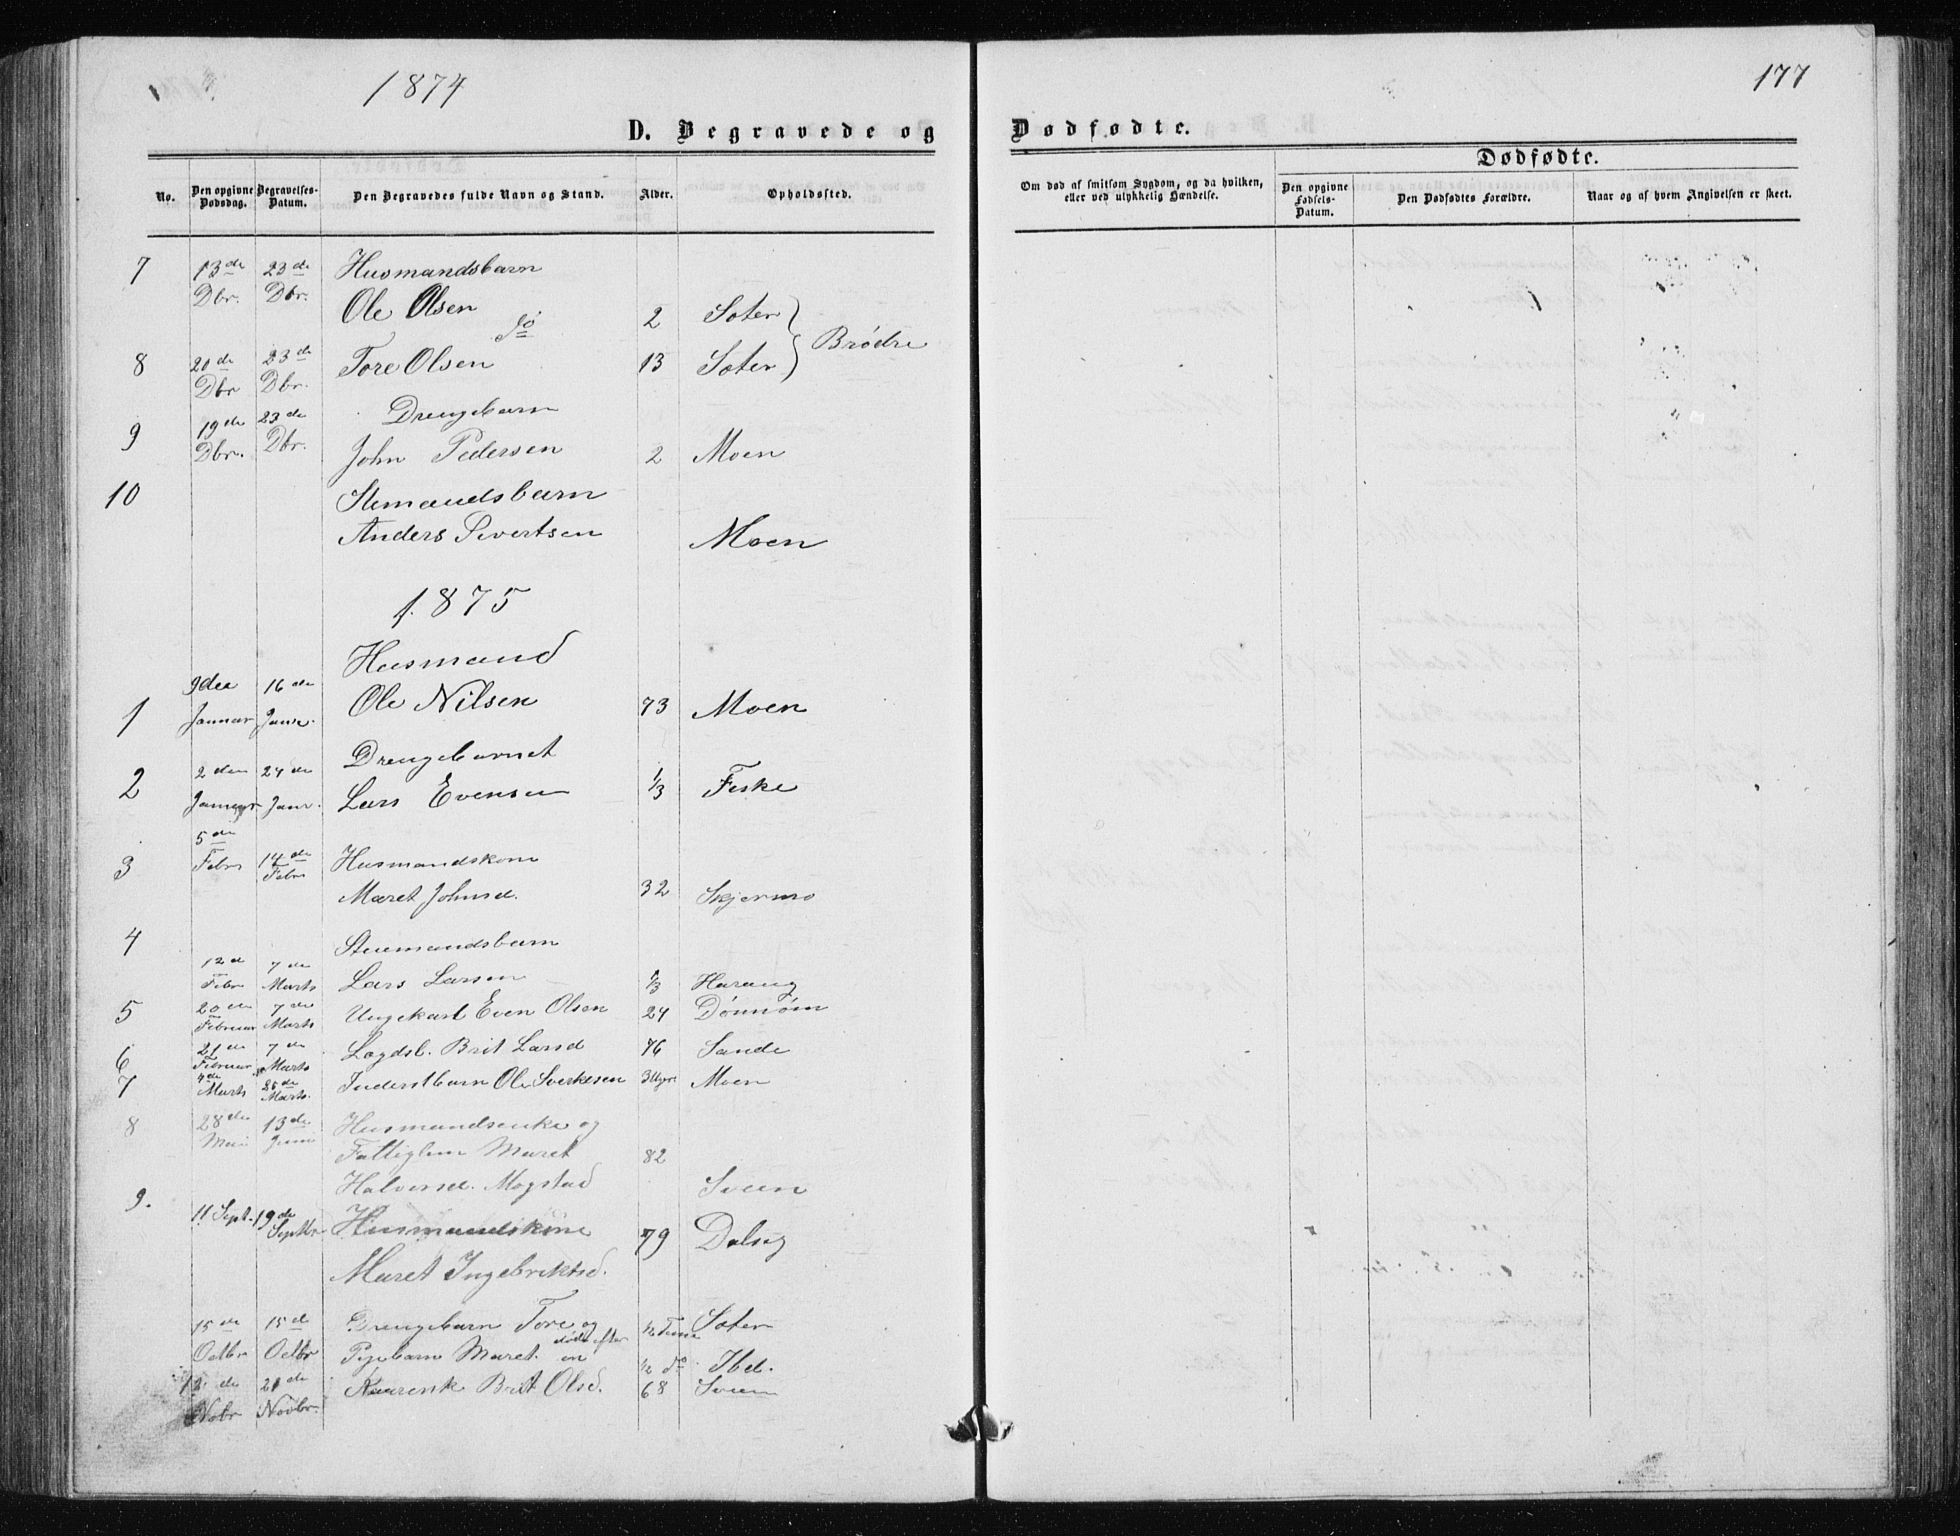 1874
177
D. Begravede og Dødfødte.
No. | Den opgivne Dødsdag. | Begravelses-Datum. | Den Begravedes fulde Navn og Stand. | Alder. | Opholdssted. | Om død af smitsom Sygdom, og da hvilken, eller ved ulykkelig Hændelse. | Dødfødte. Den opgivne Fødsels-Datum. | Den Dødfødtes Forældre. | Naar og af hvem Angivelsen er skeet.
7 13de Dbr. 23de Dbr. Husmandsbarn
Ole Olsen 2 Soter
do Brødre
8 20de Dbr 23de Dbr. Tore Olsen 13 Soter
9 19de Dbr. 23de Dbr. Drengebarn
John Pedersen 2 Moen
10
Anders Sivertsen Moen
1875
Husmand
1 9den Januar 16de Janr. Ole Nilsen 73 Moen
Drengebarnet
2 2den Januar 24de Janr. Lars Evensen 1/3 Feske
3 5de Febr 14de Febr Husmandskone
Maret Johnsd. 32 Skjermo
4
12de Febr 7de Marts Lars Larsen 1/3 Harang
5 20de Februar 7de Marts Ungekarl Even Olsen 24
6 21de Februar 7de Marts Lægdsl. Brit Larsd 76 Sande
7 4de Marts 28de Marts. Inderstbarn Ole 3 Ugr Moen
8 28de Mai 13de Juni Husmandsenke og
Fattiglem Maret 82
Halvorsd. Mogstad Sveen
9. 11 Sept. 19de Septbr Husmandskone 79 Dalseg
Maret Ingebriktsd.
15de Octbr 15de Octbr Drengebarn Tore og 1/2 Time Soter
Pigebarn Maret døde efter en 1/2 do Ibd.
12de Nobr 21de Novbr. Brit Olsd. 68 Sveen